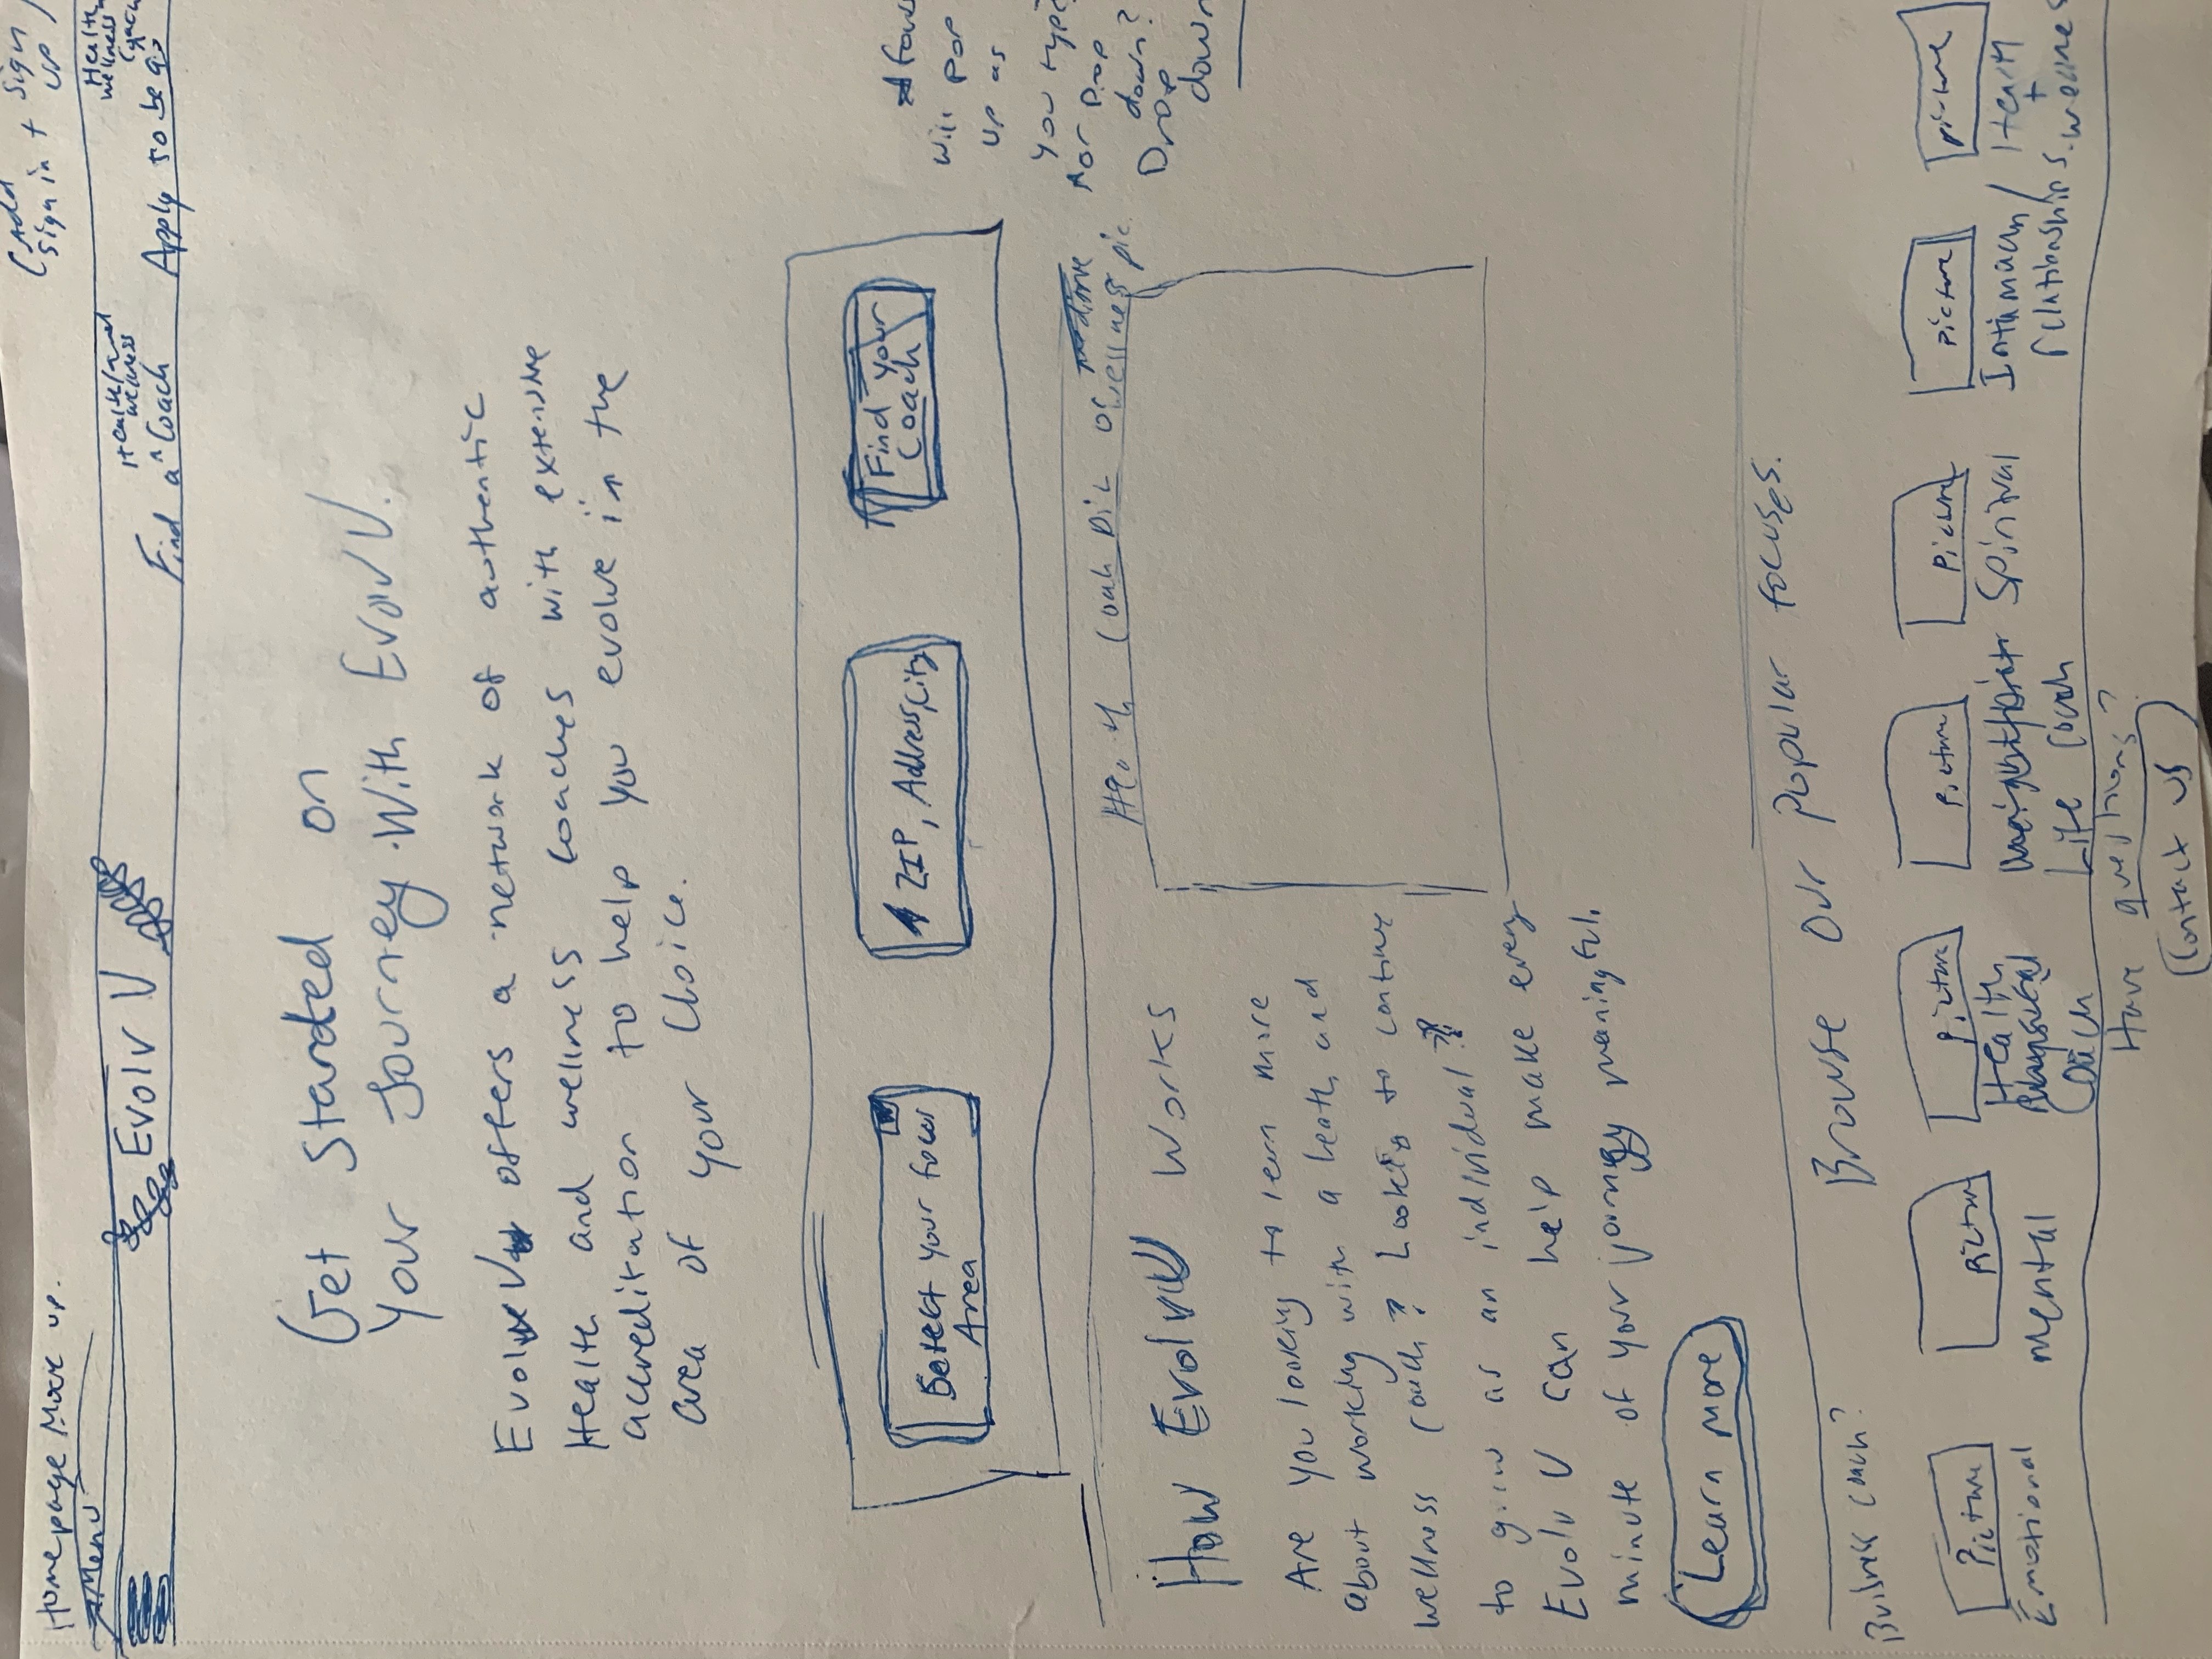 Homepage Move up.
(Add
Sign in + Sign
up)
Menu
Evolv U
Health/and
wellness
Find a ^ Coach
Health
wellness
Apply to be a
Get Started on
Your Journey With Evolv U.
Evolv U offers a network of authentic
Health and wellness coaches with extensive
accreditation to help you evolve in the
area of your choice.
Select your focus
Area
ZIP, Address, City
Find your
Coach
will pop
up as
you type?
or Drop
down?
Drop
down
How Evolv U Works
Are you looking to learn more
about working with a heath and
wellness coach? Looking to continue
to grow as an individual?
Evolv U can help make every
minute of your journey meaningful.
Learn more
Coach pic or wellness pic
Browse our popular focuses.
Buisness coach?
Picture
Emotional
Picture
Mental
Picture
Health
Physical
Coach
Picture
Life coach
Picture
Spirital
Picture
Intimacy/
relationships
picture
Health
+
wellness
Have questions?
Contact us